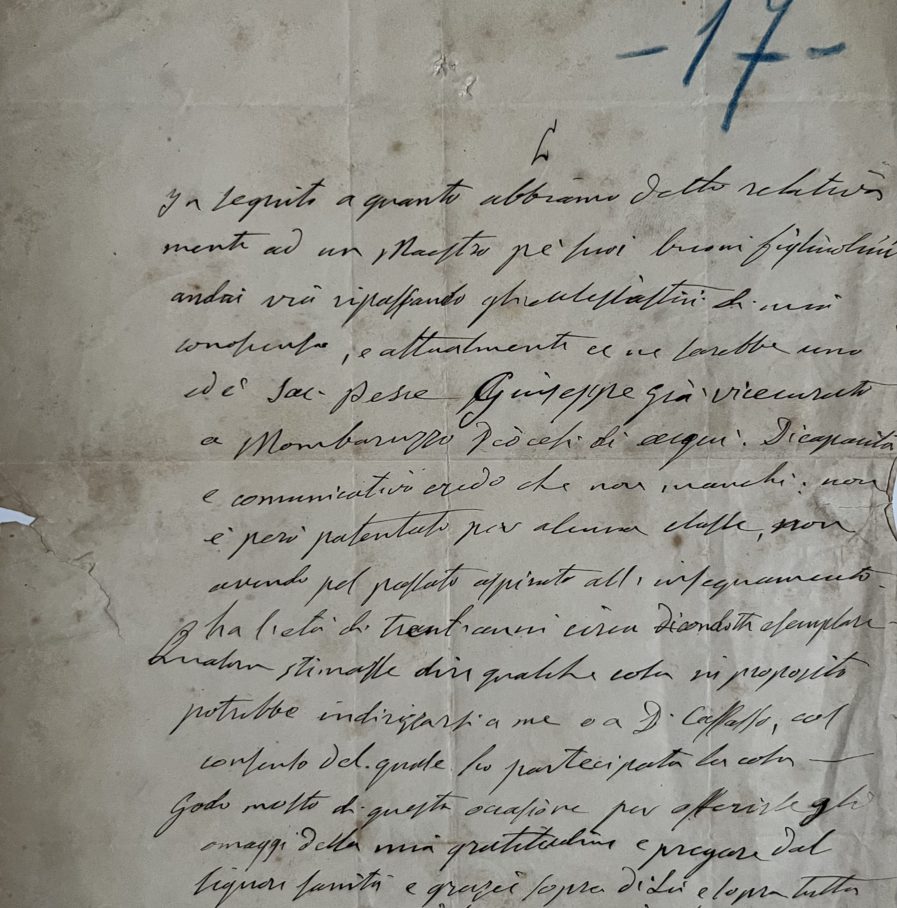 - 17 -
In seguito a quanto abbiamo detto relativa
mente ad un Maestro pe' suoi buoni figliuolini
andai via ripassando gli ecclesiastici di mia
conoscenza, e attualmente ce ne sarebbe uno
ed è Sac. Pesce Giuseppe già vicecurato
a Mombaruzzo Diocesi di acqui. Di capacità
e comunicativa credo che non manchi; non
è però patentato per alcuna classe, non
avendo pel passato aspirato all'insegnamento.
ha l'età di trent'anni circa di condotta esemplare -
Qualora stimasse dire qualche cosa in proposito
potrebbe indirizzarsi a me o a D. Caffasso, col
consenso del quale ho partecipata la cosa —
Godo molto di questa occasione per offerirle gli
omaggi della mia gratitudine e pregare dal
Signore sanità e grazie sopra di Lei e sopra tutta